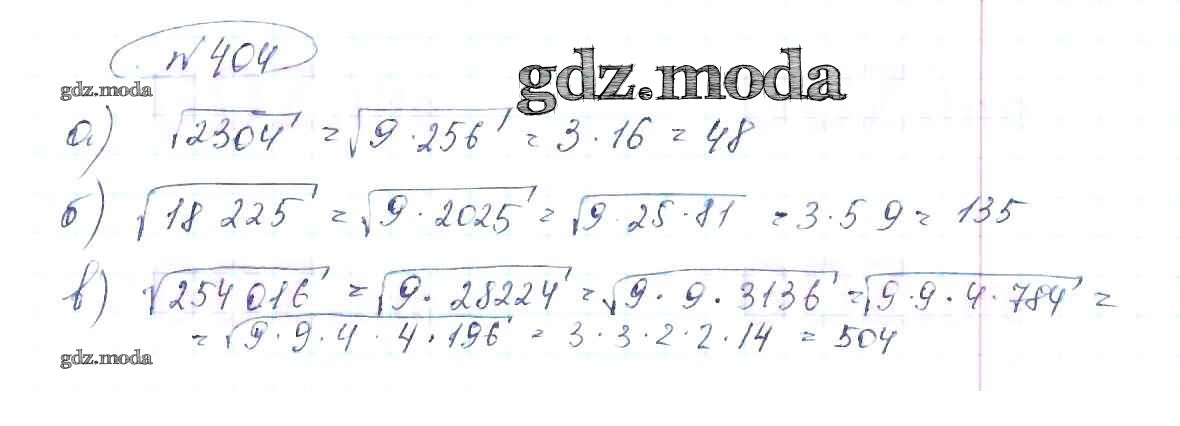 № 404
gdz.moda
gdz.moda
а) √2304 = √9·256 = 3·16 = 48
б) √18 225 = √9·2025 = √9·25·81 = 3·5 9 = 135
в) √254 016 = √9·28224 = √9·9·3136 = √9·9·4·784 =
= √9·9·4·4·196 = 3·3·2·2·14 = 504
gdz.moda